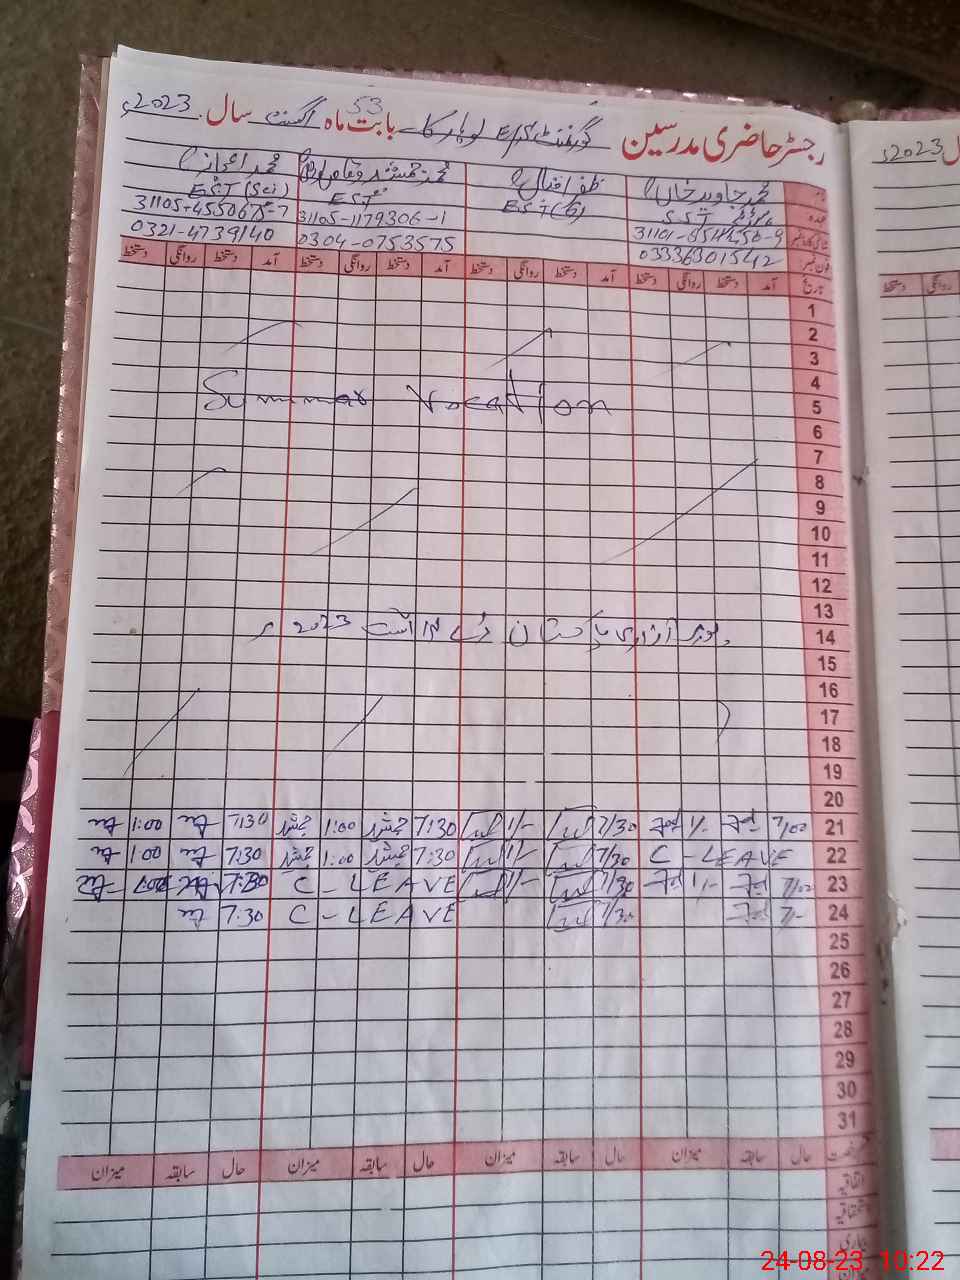 رجسٹر حاضری مدرسین گورنمنٹ E/S لوہار کا بابت ماہ اگست سال 2023ء
53
محمد جاوید خاں ظفر اقبال محمد جمشید وقاص محمد اعجاز
عہدہ SST EST EST EST (Sci)
31105-1179306-1
فون نمبر 03336301542 0304-0753575 0321-4739140
تاریخ آمد دستخط روانگی دستخط آمد دستخط روانگی دستخط آمد دستخط روانگی دستخط آمد دستخط روانگی دستخط
1
2
3
4
5 Summar Vocation
6
7
8
9
10
11
12
13
14 یوم آزادی پاکستان 14 اگست 2023ء
15
16
17
18
19
20
21 7/00 1/- 7/30 1/- 7:30 جمشید 1:00 جمشید 7:30 1:00
22 C - LEAVE 7/30 1/- 7:30 جمشید 1:00 جمشید 7:30 1:00
23 7/00 1/- 7/30 1/- C - LEAVE 7:30 1:00
24 7/- 7/30 C - LEAVE 7:30
25
26
27
28
29
30
31
حال سابقہ میزان حال سابقہ میزان حال سابقہ میزان حال سابقہ میزان
اتفاقیہ
استحقاقیہ
بیماری
میزان
2023ء
دستخط روانگی
24-08-23 10:22